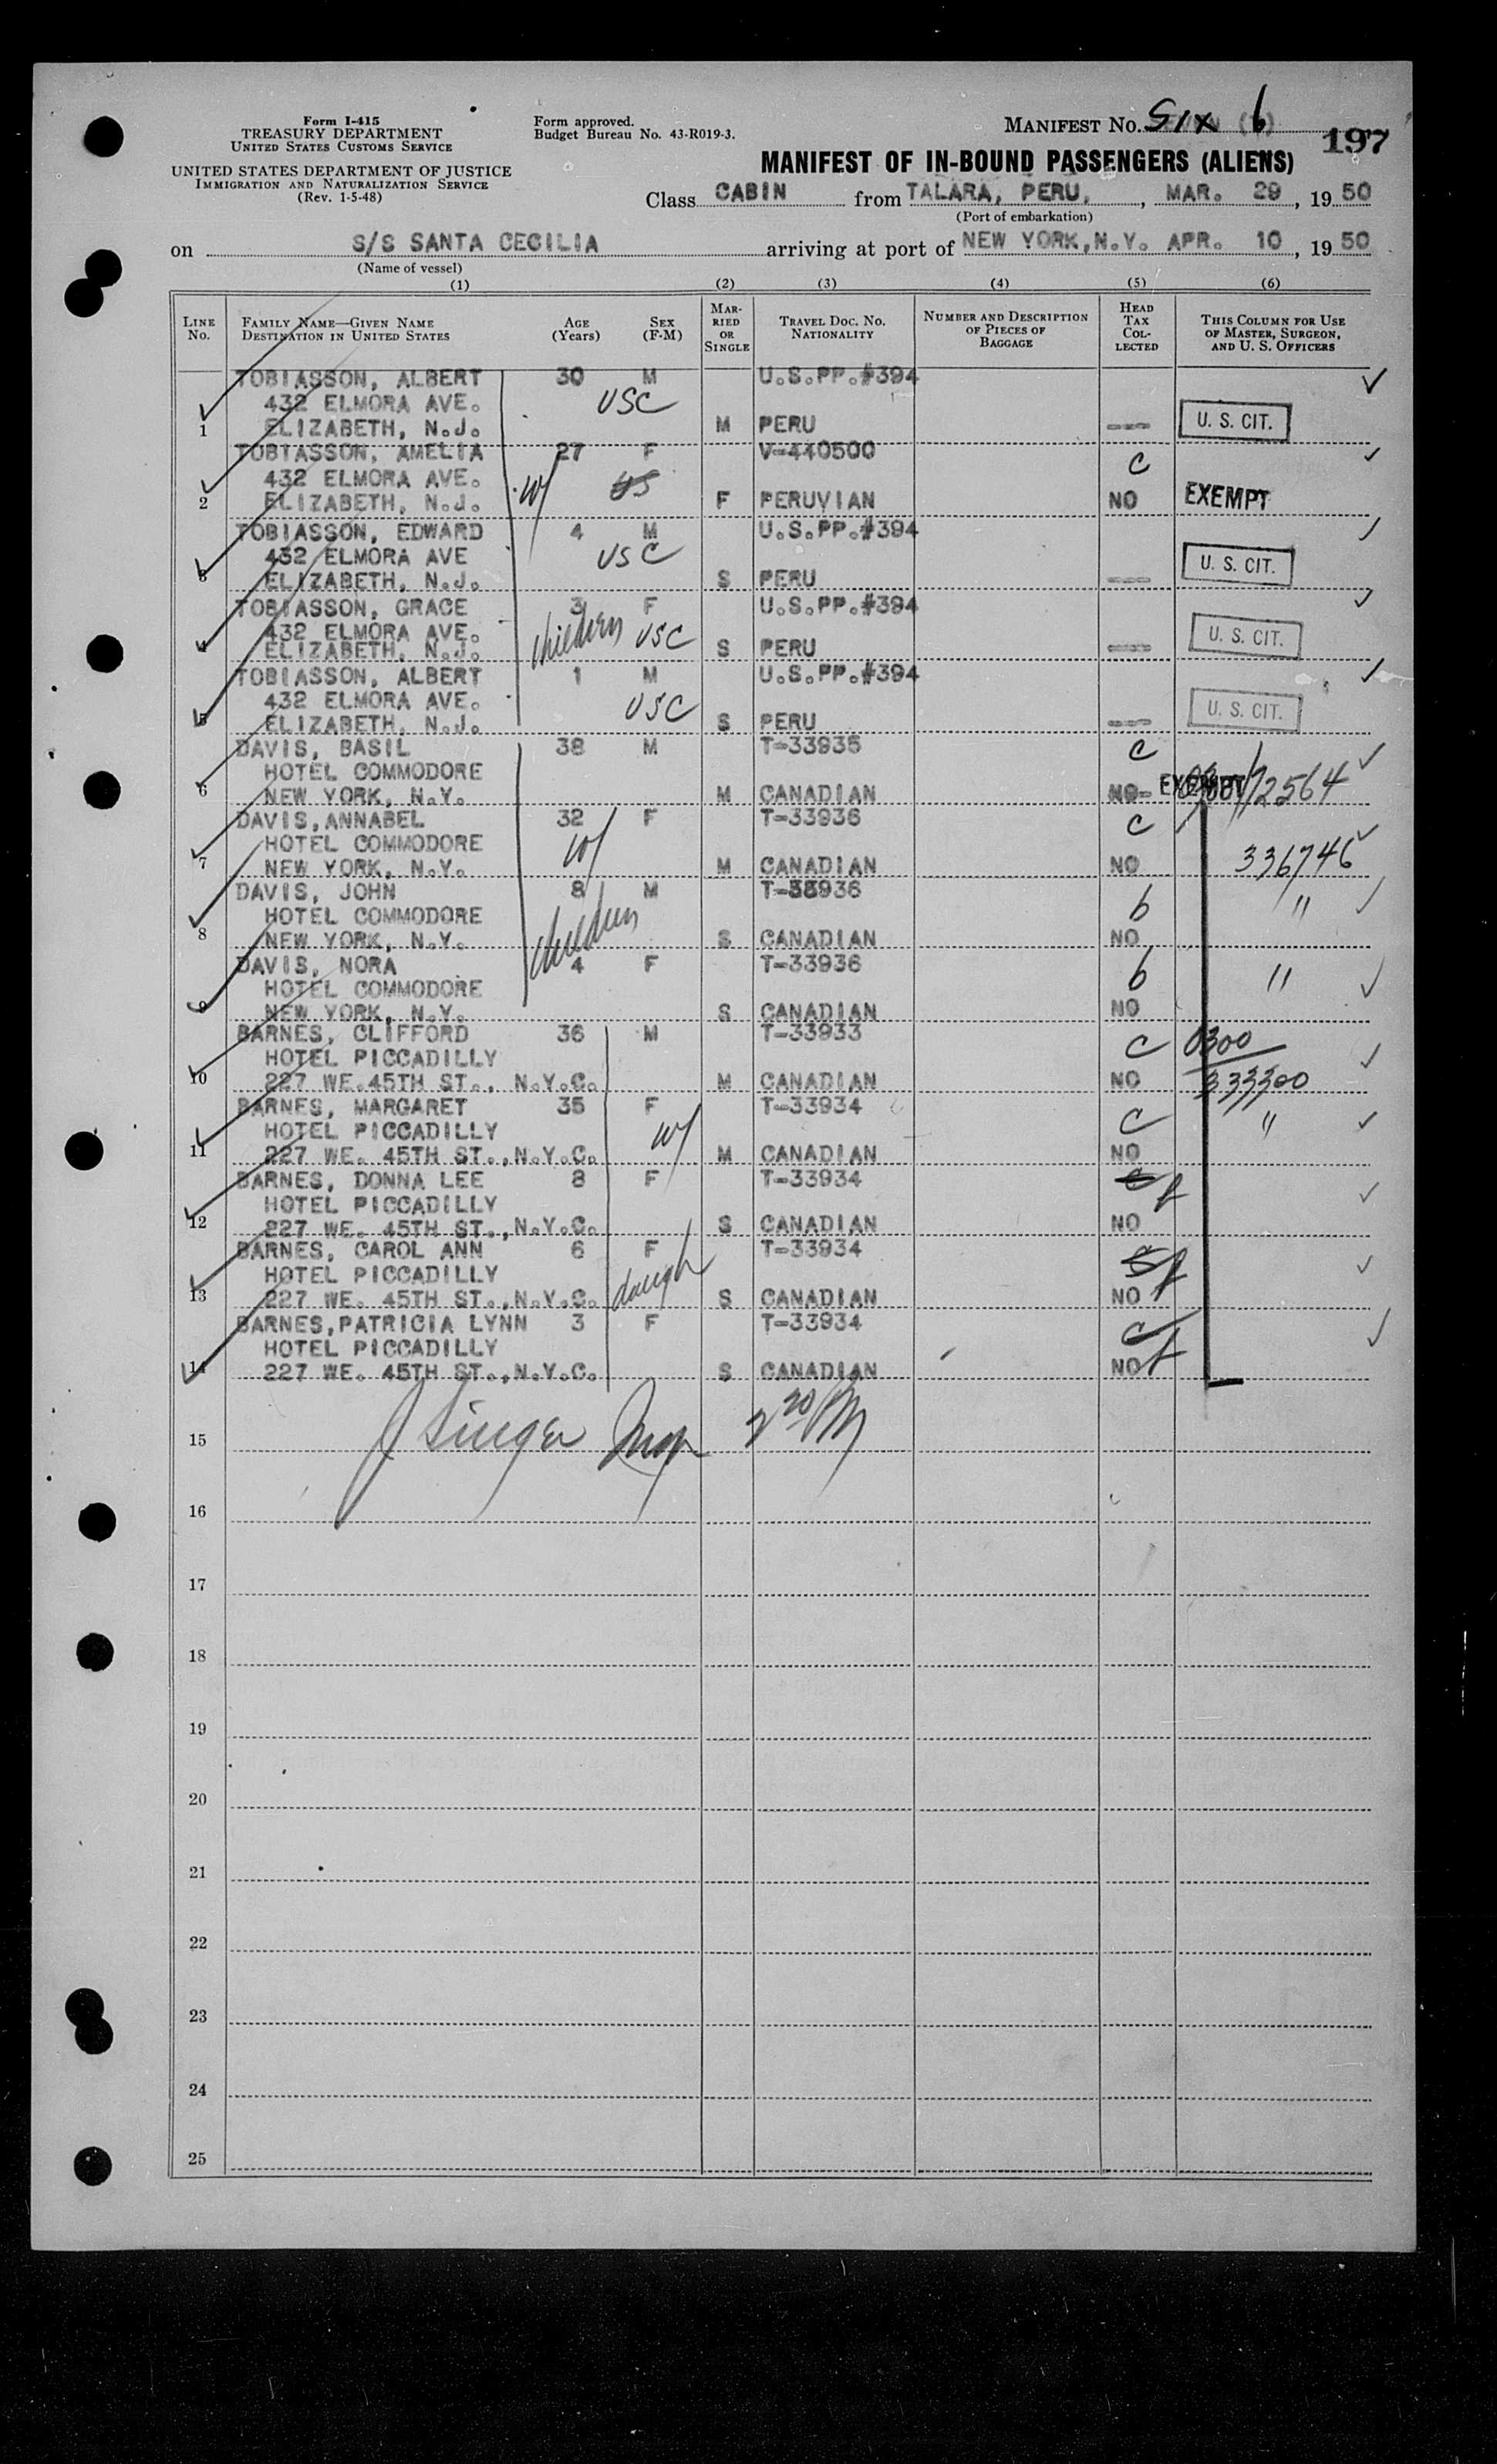 Form I-415
TREASURY DEPARTMENT
UNITED STATES CUSTOMS SERVICE
UNITED STATES DEPARTMENT OF JUSTICE
IMMIGRATION AND NATURALIZATION SERVICE
(Rev. 1-5-48)
Form approved.
Budget Bureau No. 43-R019-3.
MANIFEST No. SIX 6
197
MANIFEST OF IN-BOUND PASSENGERS (ALIENS)
Class CABIN from TALARA, PERU, , MAR. 29, 1950
(Port of embarkation)
on S/S SANTA CECILIA arriving at port of NEW YORK, N.Y. APR. 10, 1950
(Name of vessel)
(1) (2) (3) (4) (5) (6)
LINE No. FAMILY NAME—GIVEN NAME DESTINATION IN UNITED STATES AGE (Years) SEX (F-M) MARRIED OR SINGLE TRAVEL DOC. No. NATIONALITY NUMBER AND DESCRIPTION OF PIECES OF BAGGAGE HEAD TAX COLLECTED THIS COLUMN FOR USE OF MASTER, SURGEON, AND U. S. OFFICERS
TOBIASSON, ALBERT 30 M U.S.PP.#394
432 ELMORA AVE. USC
1 ELIZABETH, N.J. M PERU --- U. S. CIT.
TOBIASSON, AMELIA 27 F V-440500
432 ELMORA AVE. W/ US C
2 ELIZABETH, N.J. F PERUVIAN NO EXEMPT
TOBIASSON, EDWARD 4 M U.S.PP.#394
432 ELMORA AVE USC
3 ELIZABETH, N.J. S PERU --- U. S. CIT.
TOBIASSON, GRACE 3 F U.S.PP.#394
432 ELMORA AVE. children USC
4 ELIZABETH, N.J. S PERU --- U. S. CIT.
TOBIASSON, ALBERT 1 M U.S.PP.#394
432 ELMORA AVE. USC
5 ELIZABETH, N.J. S PERU --- U. S. CIT.
DAVIS, BASIL 38 M T-33935 C
HOTEL COMMODORE
6 NEW YORK, N.Y. M CANADIAN NO EXEMPT
DAVIS, ANNABEL 32 F T-33936 C
HOTEL COMMODORE W/
7 NEW YORK, N.Y. M CANADIAN NO 336746
DAVIS, JOHN 8 M T-33936
HOTEL COMMODORE children b "
8 NEW YORK, N.Y. S CANADIAN NO
DAVIS, NORA 4 F T-33936
HOTEL COMMODORE b "
9 NEW YORK, N.Y. S CANADIAN NO
BARNES, CLIFFORD 36 M T-33933
HOTEL PICCADILLY C 0300
10 227 WE. 45TH ST., N.Y.C. M CANADIAN NO 333300
BARNES, MARGARET 35 F T-33934
HOTEL PICCADILLY W/ C "
11 227 WE. 45TH ST., N.Y.C. M CANADIAN NO
BARNES, DONNA LEE 8 F T-33934
HOTEL PICCADILLY
12 227 WE. 45TH ST., N.Y.C. S CANADIAN NO
BARNES, CAROL ANN 6 F T-33934
HOTEL PICCADILLY daugh
13 227 WE. 45TH ST., N.Y.C. S CANADIAN NO
BARNES, PATRICIA LYNN 3 F T-33934
HOTEL PICCADILLY
14 227 WE. 45TH ST., N.Y.C. S CANADIAN NO
J Singer Insp
15
16
17
18
19
20
21
22
23
24
25